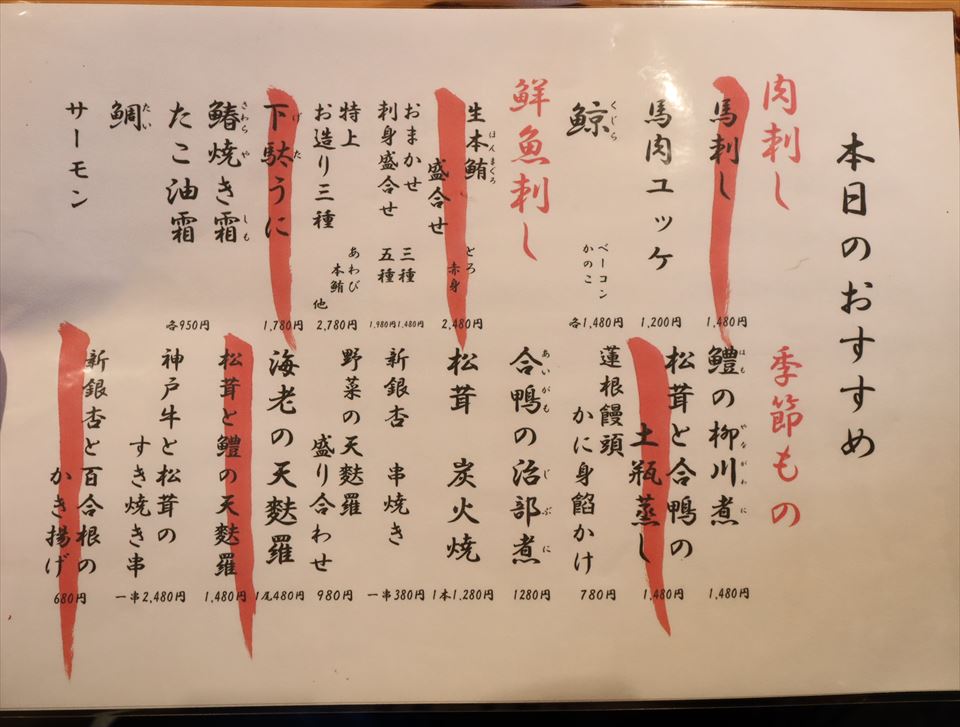 本日のおすすめ
肉刺し
馬刺し 1,480円
馬肉ユッケ 1,200円
鯨 くじら ベーコン かのこ 各1,480円
鮮魚刺し
生本鮪 ほんまぐろ 盛合せ とろ 赤身 2,480円
おまかせ 三種 1,480円
刺身盛合せ 五種 1,980円
特上 あわび
お造り三種 本鮪 他 2,780円
下駄うに げた 1,780円
鰆焼き霜 さわら や しも
たこ油霜 各950円
鯛 たい
サーモン
季節もの
鱧の柳川煮 はも やながわ に 1,480円
松茸と合鴨の
土瓶蒸し 1,480円
蓮根饅頭
かに身餡かけ 780円
合鴨の治部煮 あいがも じぶ に 1280円
松茸 炭火焼 1本1,280円
新銀杏 串焼き 一串380円
野菜の天麩羅
盛り合わせ 980円
海老の天麩羅 1尾480円
松茸と鱧の天麩羅 1,480円
神戸牛と松茸の
すき焼き串 一串2,480円
新銀杏と百合根の
かき揚げ 680円